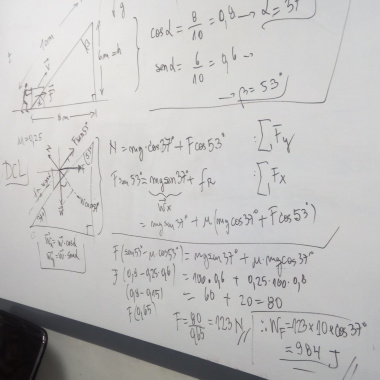 cosα = 8/10 = 0,8 → α = 37°
senα = 6/10 = 0,6 →
→ β = 53°
g
10m
6m = h
8m
β
μ = 0,25
DCL
Fsen53°
Fcos53°
N = mg·cos37° + Fcos53° : [Fy
Fsen53° = mgsen37° + fR : [Fx
Wx
= mgsin37° + μ(mgcos37° + Fcos53°)
F(sen53° - μ·cos53°) = mgsin37° + μ·mgcos37°
F(0,8 - 0,25·0,6) = 100·0,6 + 0,25·100·0,8
(0,8 - 0,15) = 60 + 20 = 80
F(0,65)
F = 80/0,65 = 123 N
∴ WF = 123 × 10 × cos37°
= 984 J